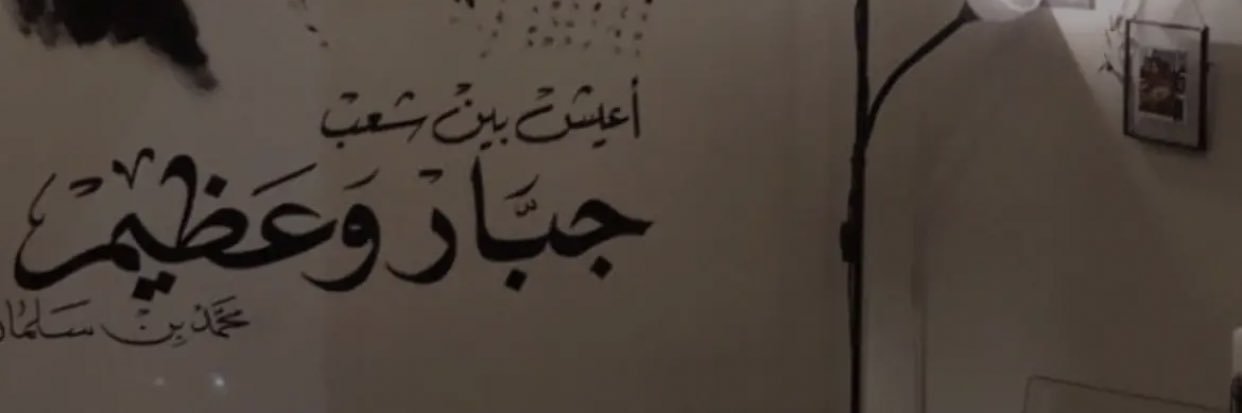 أعيش بين شعب
جبّار وَعَظيم
محمّد بِن سَلمان